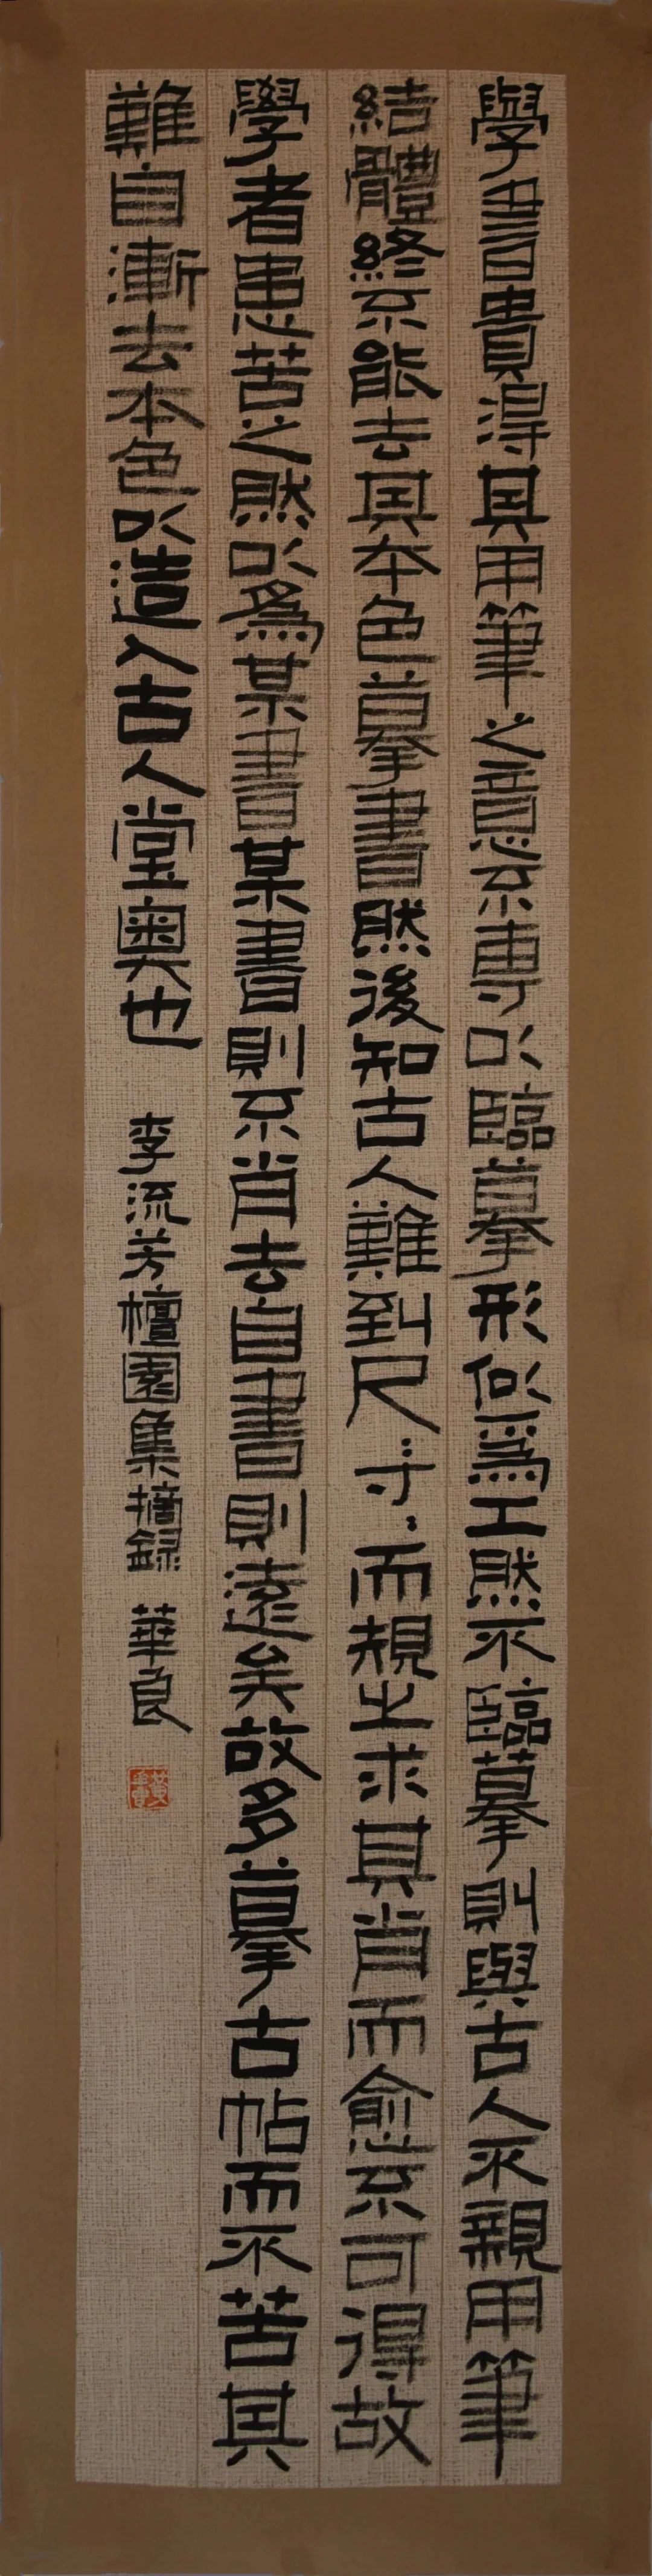 學書貴得其用筆之意不專以臨摹形似爲工然不臨摹則與古人不親用筆
結體終不能去其本色摹書然後知古人難到尺〻寸〻而規之求其肖而愈不可得故
學者患苦之然以爲某書某書則不肖去自書則遠矣故多摹古帖而不苦其
難自漸去本色以造入古人堂奧也 李流芳檀園集摘録 華良